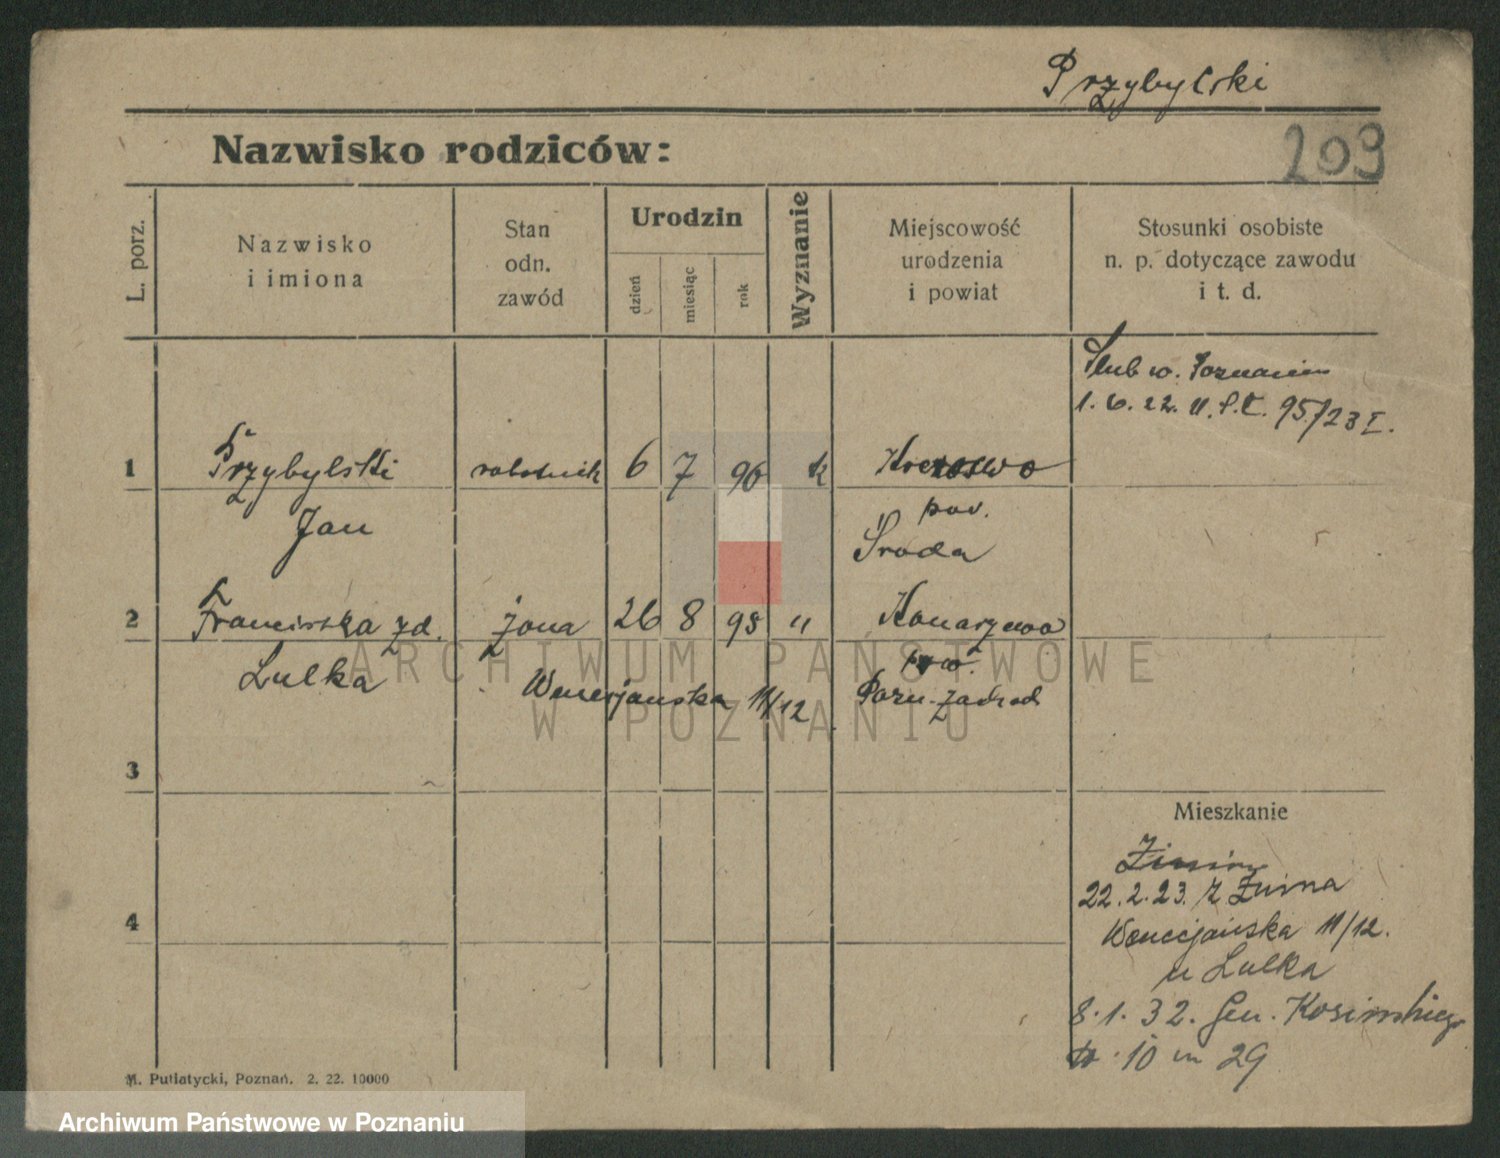 Przybylski
Nazwisko rodziców:
209
L. porz.
Nazwisko
i imiona
Stan
odn.
zawód
Urodzin
dzień
miesiąc
rok
Wyznanie
Miejscowość
urodzenia
i powiat
Stosunki osobiste
n. p. dotyczące zawodu
i t. d.
Ślub w. Poznaniu
1. 6. 22. U.S.C. 95/23 I.
1 Przybylski robotnik 6 7 96 k
Jan
pow.
Środa
2 Franciszka zd. żona 26 8 98 " Konarzewo
Lulka
pow.
Wenecjańska 11/12 Pozn. zachod
3
Mieszkanie
22.2.23. z Żnina
4
Wenecjańska 11/12.
u Lulka
8.1.32. Gen. Kosińskiego
10 m 29
M. Putiatycki, Poznań. 2. 22. 10000
ARCHIWUM PAŃSTWOWE
W POZNANIU
Archiwum Państwowe w Poznaniu